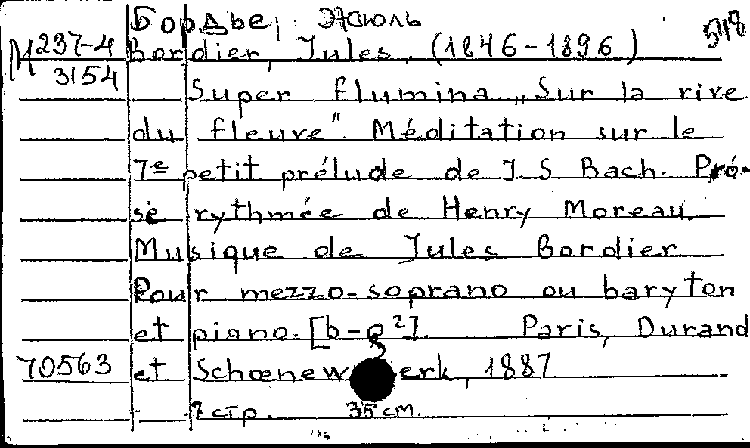 Бордье, Жюль 548
М 237-4 Bordier, Jules, (1846-1896)
3154 Super flumina „Sur la rive
du fleuve". Méditation sur le
7e petit prélude de J S Bach. Pró-
se rythmée de Henry Moreau.
Musique de Jules Bordier
Pour mezzo-soprano ou baryton
et piano. [b-g²] Paris, Durand
70563 et Schœnewerk, 1887
7 стр. 35 см